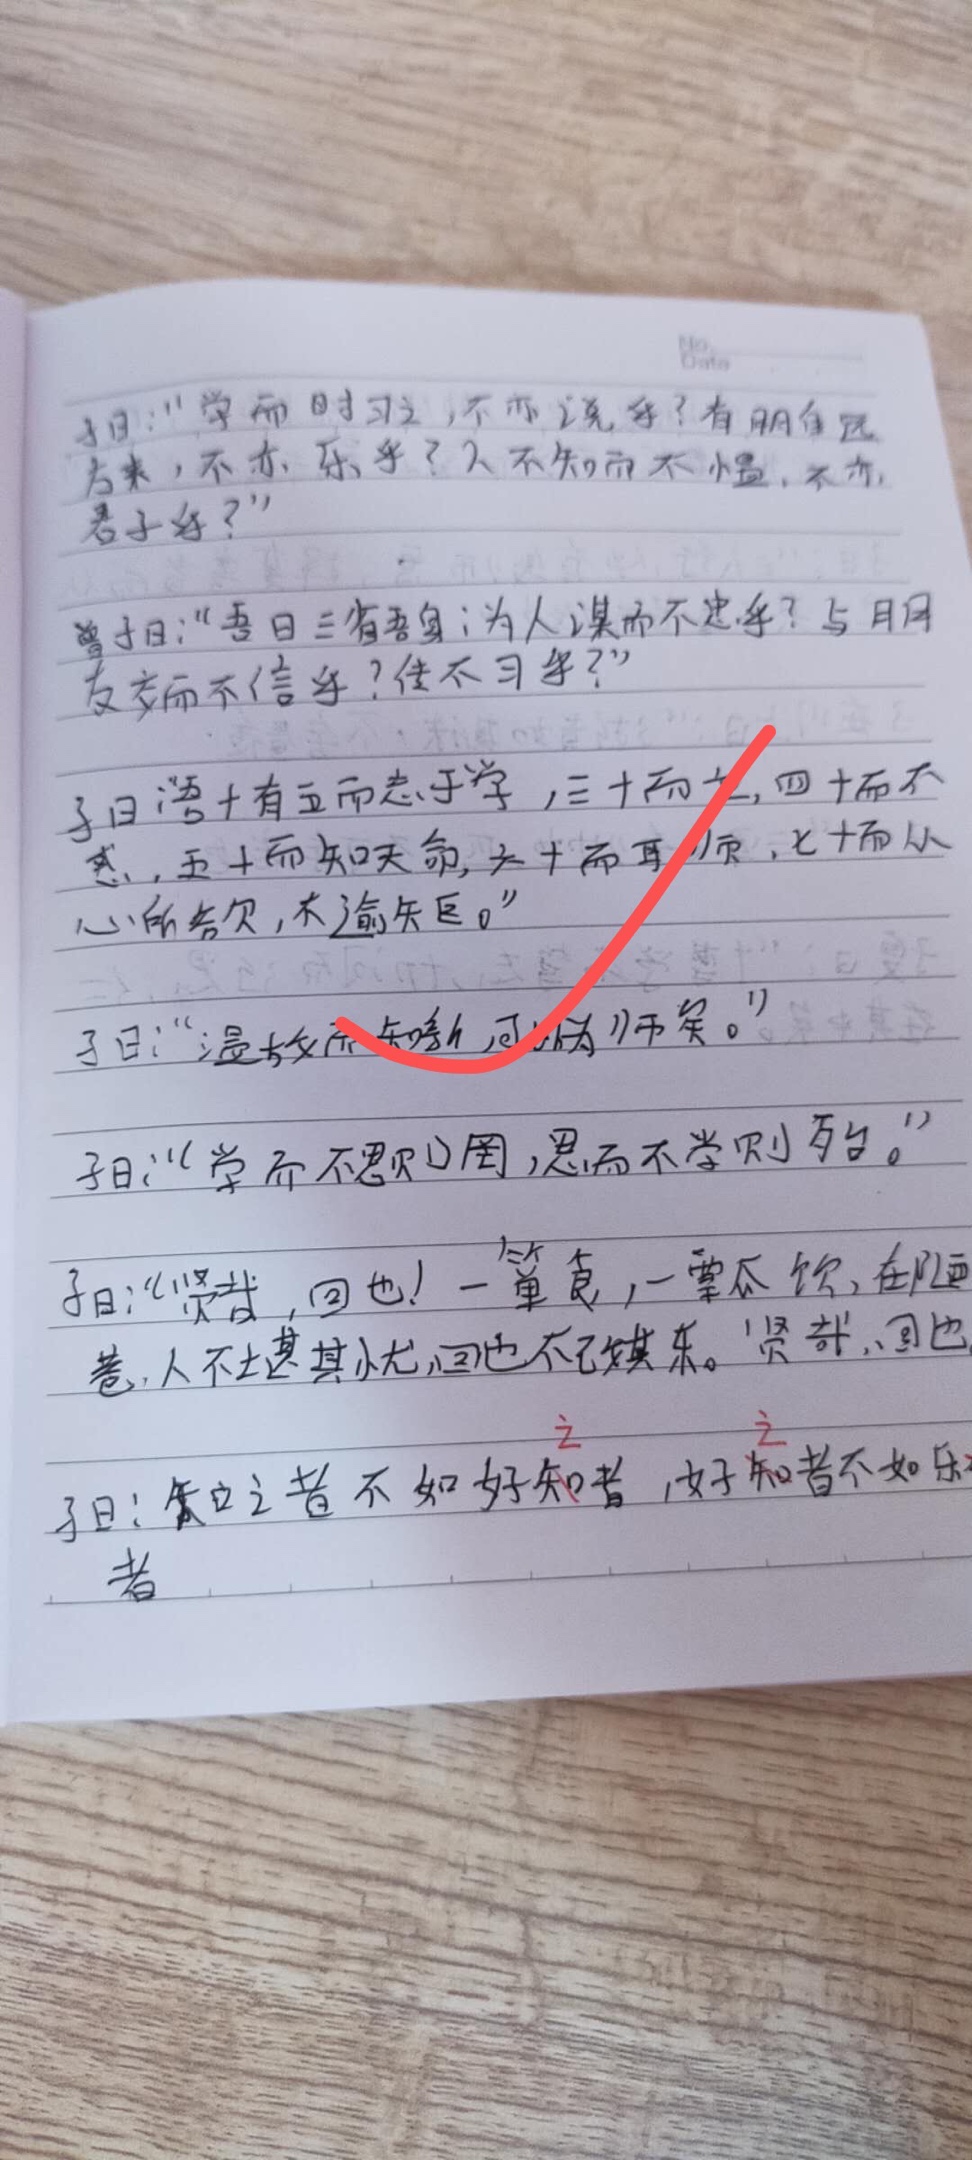 No.
Date
子曰：“学而时习之，不亦说乎？有朋自远
方来，不亦乐乎？人不知而不愠，不亦
君子乎？”
曾子曰：“吾日三省吾身：为人谋而不忠乎？与朋
友交而不信乎？传不习乎？”
子曰：“吾十有五而志于学，三十而立，四十而不
惑，五十而知天命，六十而耳顺，七十而从
心所欲，不逾矩。”
子曰：“温故而知新，可以为师矣。”
子曰：“学而不思则罔，思而不学则殆。”
子曰：“贤哉，回也！一箪食，一瓢饮，在陋
巷，人不堪其忧，回也不改其乐。贤哉，回也
之 之
子曰：知之者不如好知者，好知者不如乐
者